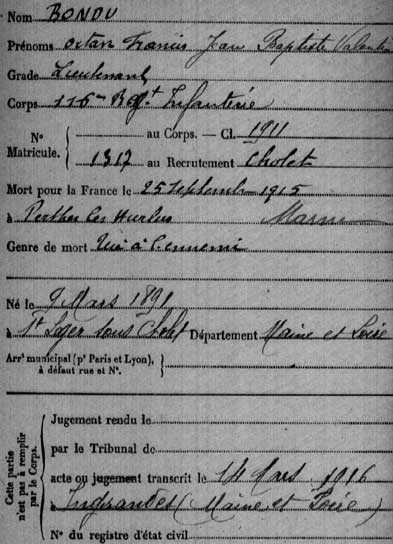 Nom BONDU
Prénoms Octav Francis Jean Baptiste Valentin
Grade Lieutenant
Corps 116me Régt Infanterie
No Matricule. { au Corps. — Cl. 1911
1317 au Recrutement Cholet
Mort pour la France le 25 Septembre 1915
à Perthes les Hurlus Marne
Genre de mort Tué à l'ennemi
Né le 9 Mars 1891
à St Léger sous Cholet Département Maine et Loire
Arrt municipal (pr Paris et Lyon), à défaut rue et No. }
Cette partie n'est pas à remplir par le Corps.
Jugement rendu le
par le Tribunal de
acte ou jugement transcrit le 14 Mars 1916
à Ingrandes (Maine et Loire)
No du registre d'état civil